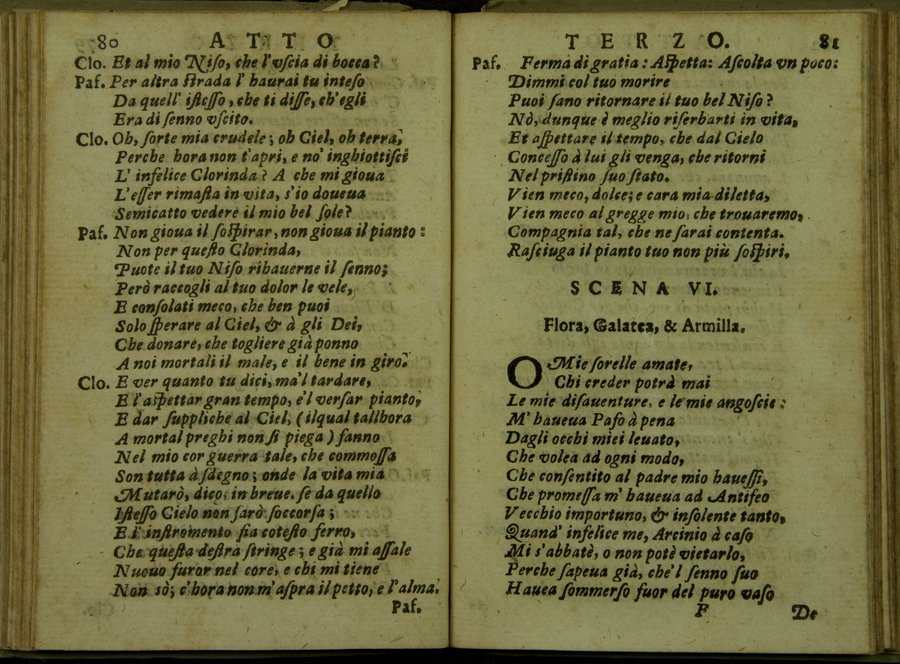 80 ATTO
Clo. Et al mio Niſo, che l'vſcia di bocca?
Paſ. Per altra ſtrada l' haurai tu inteſo
Da quell' iſteſſo, che ti diſſe, ch'egli
Era di ſenno vſcito.
Clo. Oh, ſorte mia crudele; oh Ciel, oh terra,
Perche hora non t'apri, e no' inghiottiſci
L' infelice Clorinda? A che mi gioua
L'eſſer rimaſta in vita, s'io doueua
Semicatto vedere il mio bel ſole?
Paſ. Non gioua il ſoſpirar, non gioua il pianto:
Non per queſto Clorinda,
Puote il tuo Niſo rihauerne il ſenno;
Però raccogli al tuo dolor le vele,
E conſolati meco, che ben puoi
Solo ſperare al Ciel, & à gli Dei,
Che donare, che togliere già ponno
A noi mortali il male, e il bene in giro.
Clo. E ver quanto tu dici, ma'l tardare,
E l'aſpettar gran tempo, e'l verſar pianto,
E dar ſuppliche al Ciel, (ilqual tallhora
A mortal preghi non ſi piega) fanno
Nel mio cor guerra tale, che commoſſa
Son tutta à ſdegno; onde la vita mia
Mutarò, dico, in breue, ſe da quello
Iſteſſo Cielo non ſarò ſoccorſa;
E l' inſtromento fia coteſto ferro,
Che queſta deſtra ſtringe; e già mi aſſale
Nuouo furor nel core, e chi mi tiene
Non sò; c'hora non m'aſpra il petto, e l'alma.
Paſ.
TERZO. 81
Paſ. Ferma di gratia: Aſpetta: Aſcolta vn poco:
Dimmi col tuo morire
Puoi ſano ritornare il tuo bel Niſo?
Nò, dunque è meglio riſerbarti in vita,
Et aſpettare il tempo, che dal Cielo
Conceſſo à lui gli venga, che ritorni
Nel priſtino ſuo ſtato.
Vien meco, dolce, e cara mia diletta,
Vien meco al gregge mio, che trouaremo,
Compagnia tal, che ne ſarai contenta.
Raſciuga il pianto tuo non più ſoſpiri.
SCENA VI.
Flora, Galatea, & Armilla.
O Mie ſorelle amate,
Chi creder potrà mai
Le mie diſauenture, e le mie angoſcie:
M' haueua Pafo à pena
Dagli occhi miei leuato,
Che volea ad ogni modo,
Che conſentito al padre mio haueſſi,
Che promeſſa m' haueua ad Antifeo
Vecchio importuno, & inſolente tanto,
Quand' infelice me, Arcinio à caſo
Mi s'abbatè, o non potè vietarlo,
Perche ſapeua già, che'l ſenno ſuo
Hauea ſommerſo fuor del puro vaſo
F De